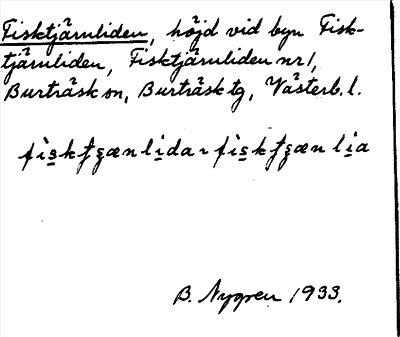 Fisktjärnliden, höjd vid byn Fisk-
tjärnliden, Fisktjärnliden nr 1,
Burträsk sn, Burträsk tg, Västerb. l.
B. Nygren 1933.